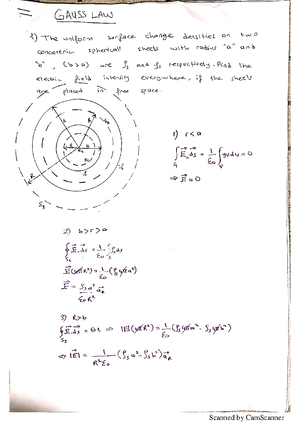 GAUSS LAW
1) The uniform surface charge densities on two
concentric spherical sheets with radius "a" and
"b", (b>a) are ρs and ρs respectively. Find the
electric field intensity everywhere, if the sheets
are placed in free space.
1) r<a
∮ E ds = 1/ε0 ∫ ρv dv = 0
⇒ E = 0
R
S3
2) b>r>a
∮ E ds = 1/ε0 ∫ ρs ds
E(4πR²) = 1/ε0 (ρs 4πa²)
E = ρs a² / ε0 R² aR
3) R>b
⇒ |E|(4πR²) = 1/ε0 (ρs 4πa² - ρs 4πb²)
S3
⇒ |E| = 1/R²ε0 (ρs a² - ρs b²) aR
Scanned by CamScanner
Scanned by CamScanner